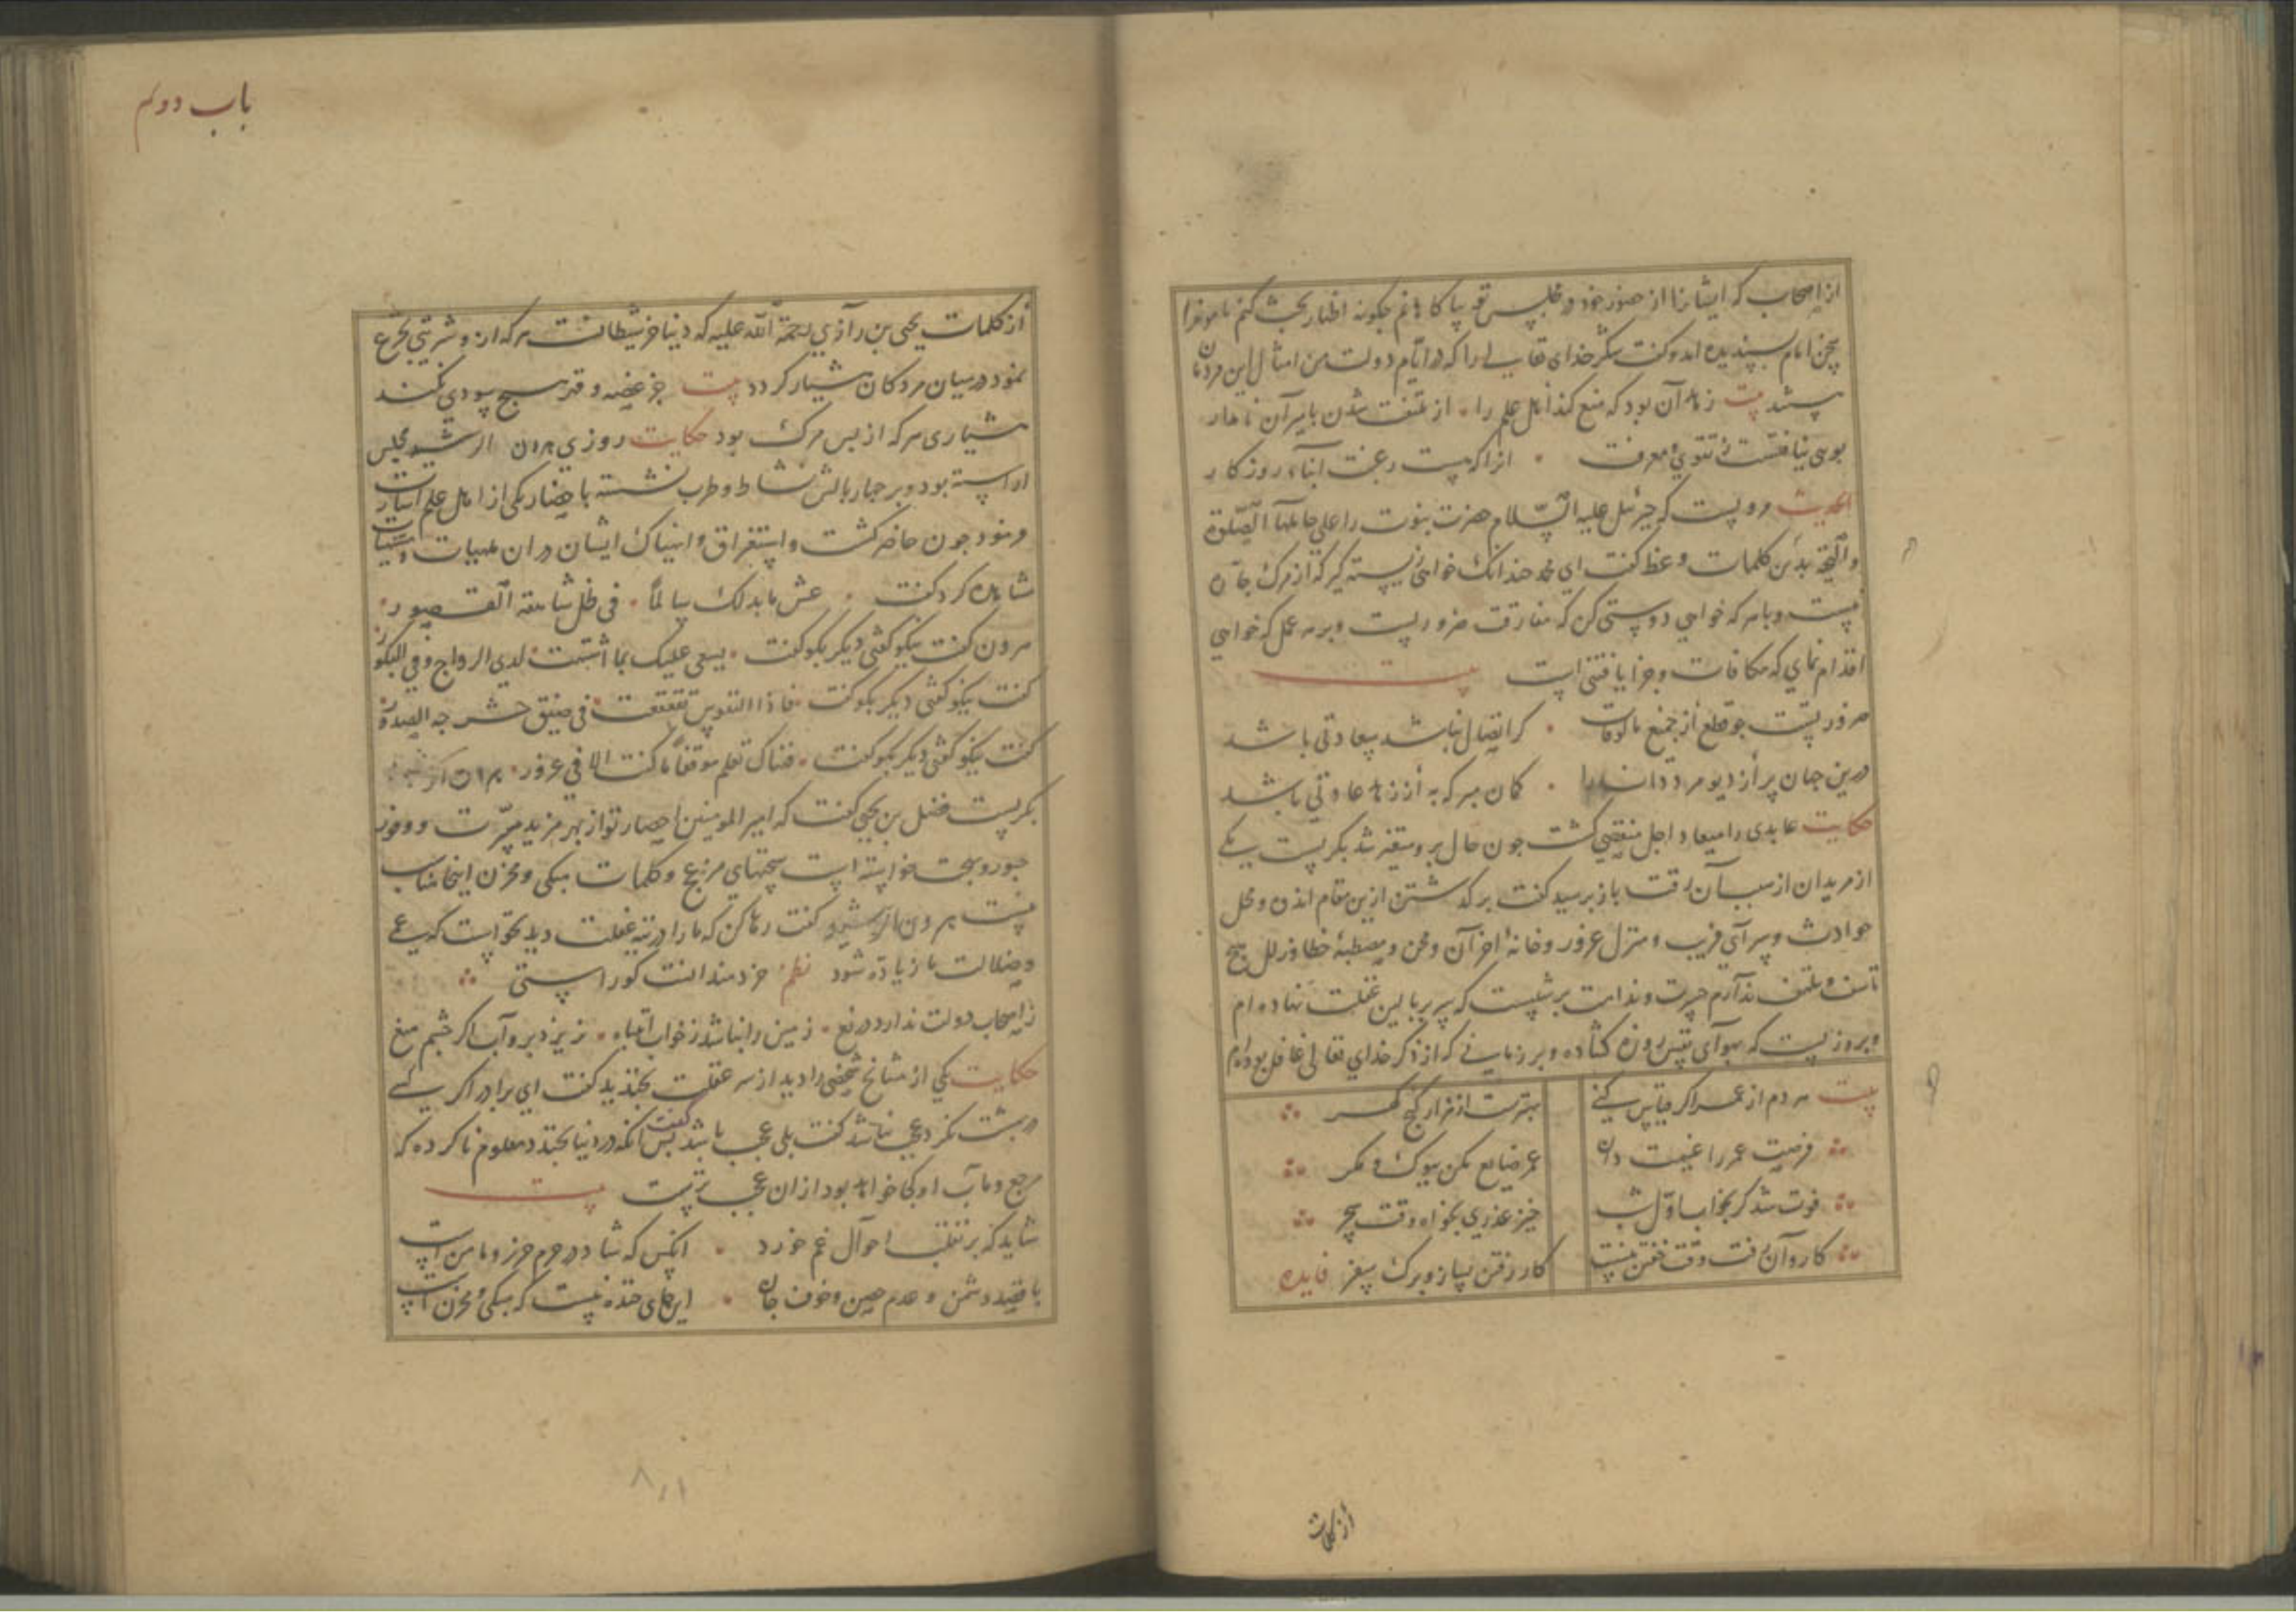 از اصحاب که ایشانرا از حضور خود در مجلس تو پاکاهانم چکونه اظهار بحث کنم مامونرا
سخن امام پسندیده امد و کفت شکر خدای تعالی را که در ایام دولت من امثال این مردمان
بیت زهاد آن بود که منع کند اهل علم را . از ملتفت شدن بامیر آن نامدار
بویی نیافتست ز تقوی و معرفت . انرا که هست رغبت ابناء روزکار
الحدیث مرویست که جبرئیل علیه السلام حضرت نبوت را علی حاملها الصلوة
والتحیة بدین کلمات وعظ کفت ای محمد چندانک خواهی زیسته کیر که از مرک چاره
نیست و با هر که خواهی دوستی کن که مفارقت ضروریست و بر هر عمل که خواهی
اقدام نمای که مکافات و جزا یافتنی است بیت
ضرورتست چو قطع از جمیع مالوفات . کر اتصال نباشد سعادتی باشد
درین جهان پر از دیو مردم دانا را . کمان مبر که به از زهد عادتی باشد
حکایت عابدی را میعاد اجل منقضی کشت چون حال برو متغیر شد بکریست یکی
از مریدان از سبب آن رقت باز پرسید کفت بر کذشتن ازین مقام اندوه و محل
حوادث و سرآی فریب و منزل غرور و خانهٔ احزان و محن و مصطبهٔ خطا و زلل هیچ
تاسف و تلهف ندآرم حسرت و ندامت بر شبیست که سر ببالین غفلت نهاده ام
و بر روزیست که بهوآی نفس روزه کشاده و بر زمانی که از ذکر خدای تعالی غافل بوده ام
بیت مردم از عمر اکر قیاس کنی بهترست از هزار کنج کهر
فرصت عمر را غنیمت دان عمر ضایع مکن ببوک و مکر
فوت شد کر بخواب اول شب خیز عذری بخواه وقت سحر
کاروآن رفت وقت خفتن نیست کار رفتن بساز و برک سفر فایده
از کلمات
باب دوم
از کلمات یحیی بن رآزی رحمة الله علیه که دنیا خمر شیطانست هر که ازو شربتی تجرع
نمود در میان مردکان هشیار کردد بیت جز غصه و قهر هیچ سودی نکند
هشیاری هر که از پس مرک بود حکایت روزی هرون الرشید مجلس
اراسته بود و بر چهار بالش نشاط و طرب نشسته باحضار یکی از اهل علم اشارت
فرمود چون حاضر کشت و استغراق و انهماک ایشان در ان ملهیات و مشتهیات
مشاهده کرد کفت . عش ما بدا لک سالماً . فی ظل شاهقة القصور
هرون کفت نیکو کفتی دیکر بکو کفت . یسعی علیک بما اشتهیت لدی الرواح و فی البکور
کفت نیکو کفتی دیکر بکو کفت . فاذا النفوس تقعقعت . فی ضیق حشرجة الصدور
کفت نیکو کفتی دیکر بکو کفت . فهناک تعلم موقناً ما کنت الا فی غرور . هرون الرشید
بکریست فضل بن یحیی کفت که امیر المومنین احضار تو از بهر مزید مسرت و وفور
حبور و بهجت خواسته است سخنهای مزعج و کلمات مبکی و محزن اینجا مناسب
نیست هرون الرشید کفت رها کن که ما را در تیه غفلت دید نخواست که عمی
و ضلالت ما زیادة شود نظم خردمند انست کو راستی
ز اصحاب دولت ندارد دریغ . زمین را نباشد ز خواب انتباه . نریزد برو آب اکر چشم میغ
حکایت یکی از مشایخ شخصی را دید از سر غفلت بخندید کفت ای برادر اکر کسی
در بهشت بکرید عجب نباشد کفت بلی عجب باشد کفت پس آنکه در دنیا بخندد معلوم ناکرده که
مرجع و مآب او کجا خواهد بود ازان عجب ترست بیت
شاید که بر تقلب احوآل غم خورد . انکس که شاد در حرم حرز و مامن است
با قصد دشمن و عدم حصن و خوف جان . این جای خنده نیست که مبکی و محزن است